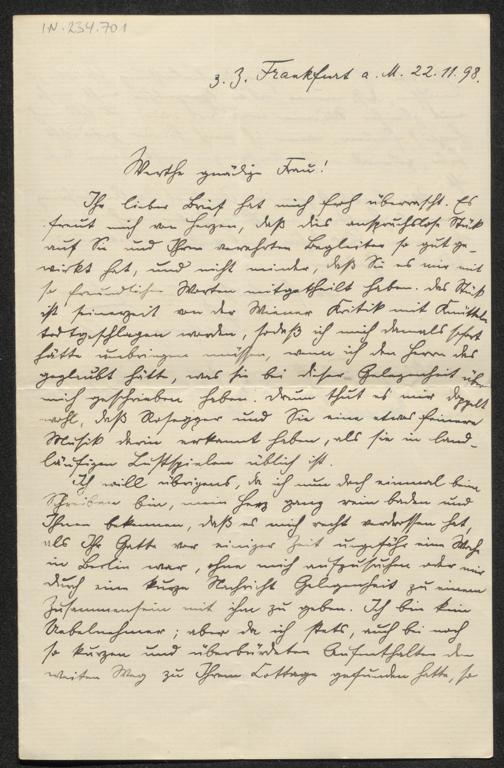 IN.234.701
z. Z. Frankfurt a. M. 22.11.98.
Werthe gnädige Frau!
Ihr lieber Brief hat mich froh überrascht. Es
freut mich von Herzen, daß das anspruchslose Stück
auf Sie und Ihren verehrten Begleiter so gut ge-
wirkt hat, und nicht minder, daß Sie es mir mit
so freundlichen Worten mitgetheilt haben. Das Stück
ist seinerzeit von der Wiener Kritik mit Knütteln
todtgeschlagen worden, sodaß ich mich damals sofort
hätte umbringen müssen, wenn ich den Herren das
geglaubt hätte, was sie bei dieser Gelegenheit über
mich geschrieben haben. Drum thut es mir doppelt
wohl, daß Rosegger und Sie eine etwas feinere
Musik darin erkannt haben, als sie in land-
läufigen Lustspielen üblich ist.
Ich will übrigens, da ich nun doch einmal beim
Schreiben bin, mein Herz ganz rein baden und
Ihnen bekennen, daß es mich recht verdrossen hat,
als Ihr Gatte vor einiger Zeit ungefähr eine Woche
in Berlin war, ohne mich aufzusuchen oder mir
durch eine kurze Nachricht Gelegenheit zu einem
Zusammensein mit ihm zu geben. Ich bin kein
Uebelnehmer; aber da ich stets, auch bei noch
so kurzen und überbürdeten Aufenthalten den
weiten Weg zu Ihrem Cottage gefunden hatte, so